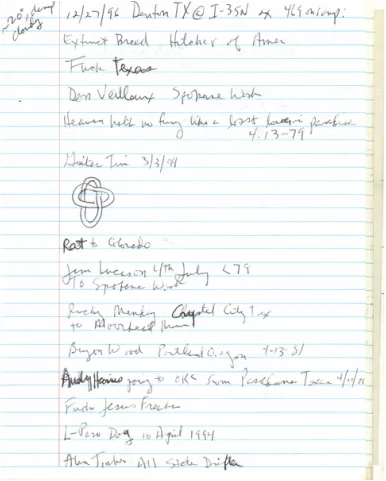 ~20° damp
cloudy
12/27/96 Denton TX @ I-35N ex 469 onramp:
Extinct Breed Hitcher of Amer
Fuck Texas
Don Veilleux Spokane Wash
Heaven hold no fury like a lost in paradise
4-13-79
Guitar Tim 3/3/94
Rat to Colorado
Jim 4/th July <79
To Spokane Wash
Rucky Monkey Crystal City Tex
to Moorhead Minn
Bryon Wood Portland Oregon 4-13-81
Andy going to OKC from Pasadena Texas
Fuckn Jesus Freaks
L-Paso Dog 10 April 1994
Alan All State Drifter